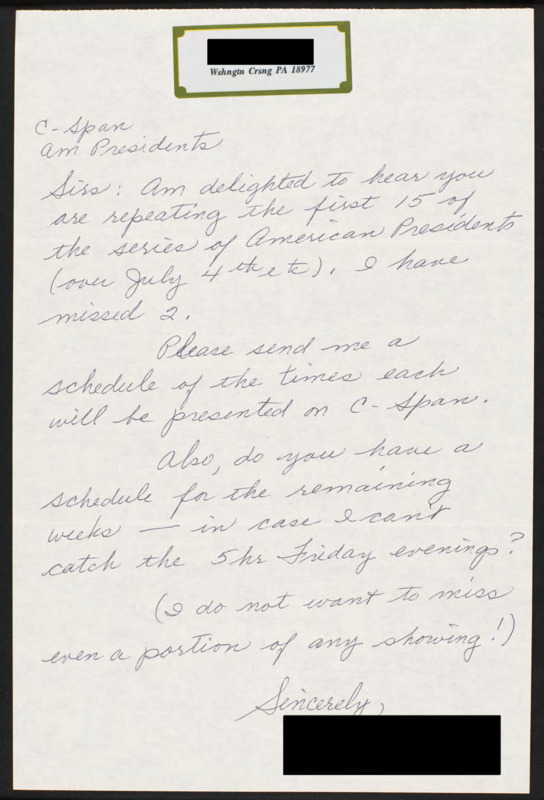 Wshngtn Crsng PA 18977
C-Span
Am Presidents
Sirs: Am delighted to hear you
are repeating the first 15 of
the series of American Presidents
(over July 4th etc). I have
missed 2.
Please send me a
schedule of the times each
will be presented on C-Span.
Also, do you have a
schedule for the remaining
weeks — in case I can't
catch the 5hr Friday evenings?
(I do not want to miss
even a portion of any showing!)
Sincerely,